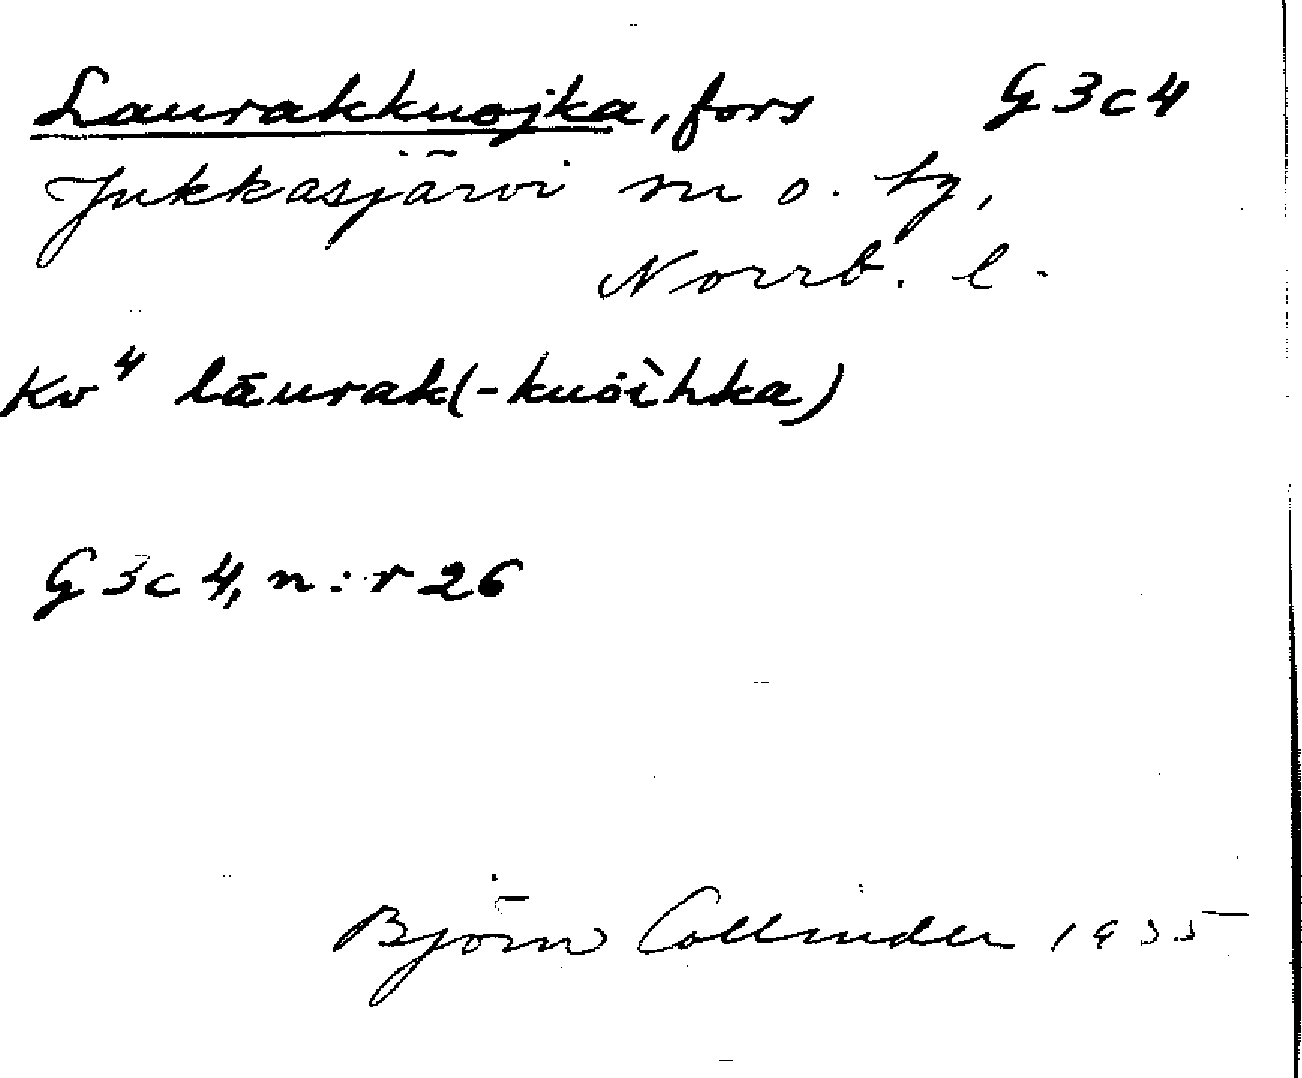 Laurakkuojka, fors G3c4
Jukkasjärvi sn o. tg,
Norrb. l.
Kv⁴ lāurak(-kuȯìhka)
G3c4, n:r 26
Björn Collinder 1935